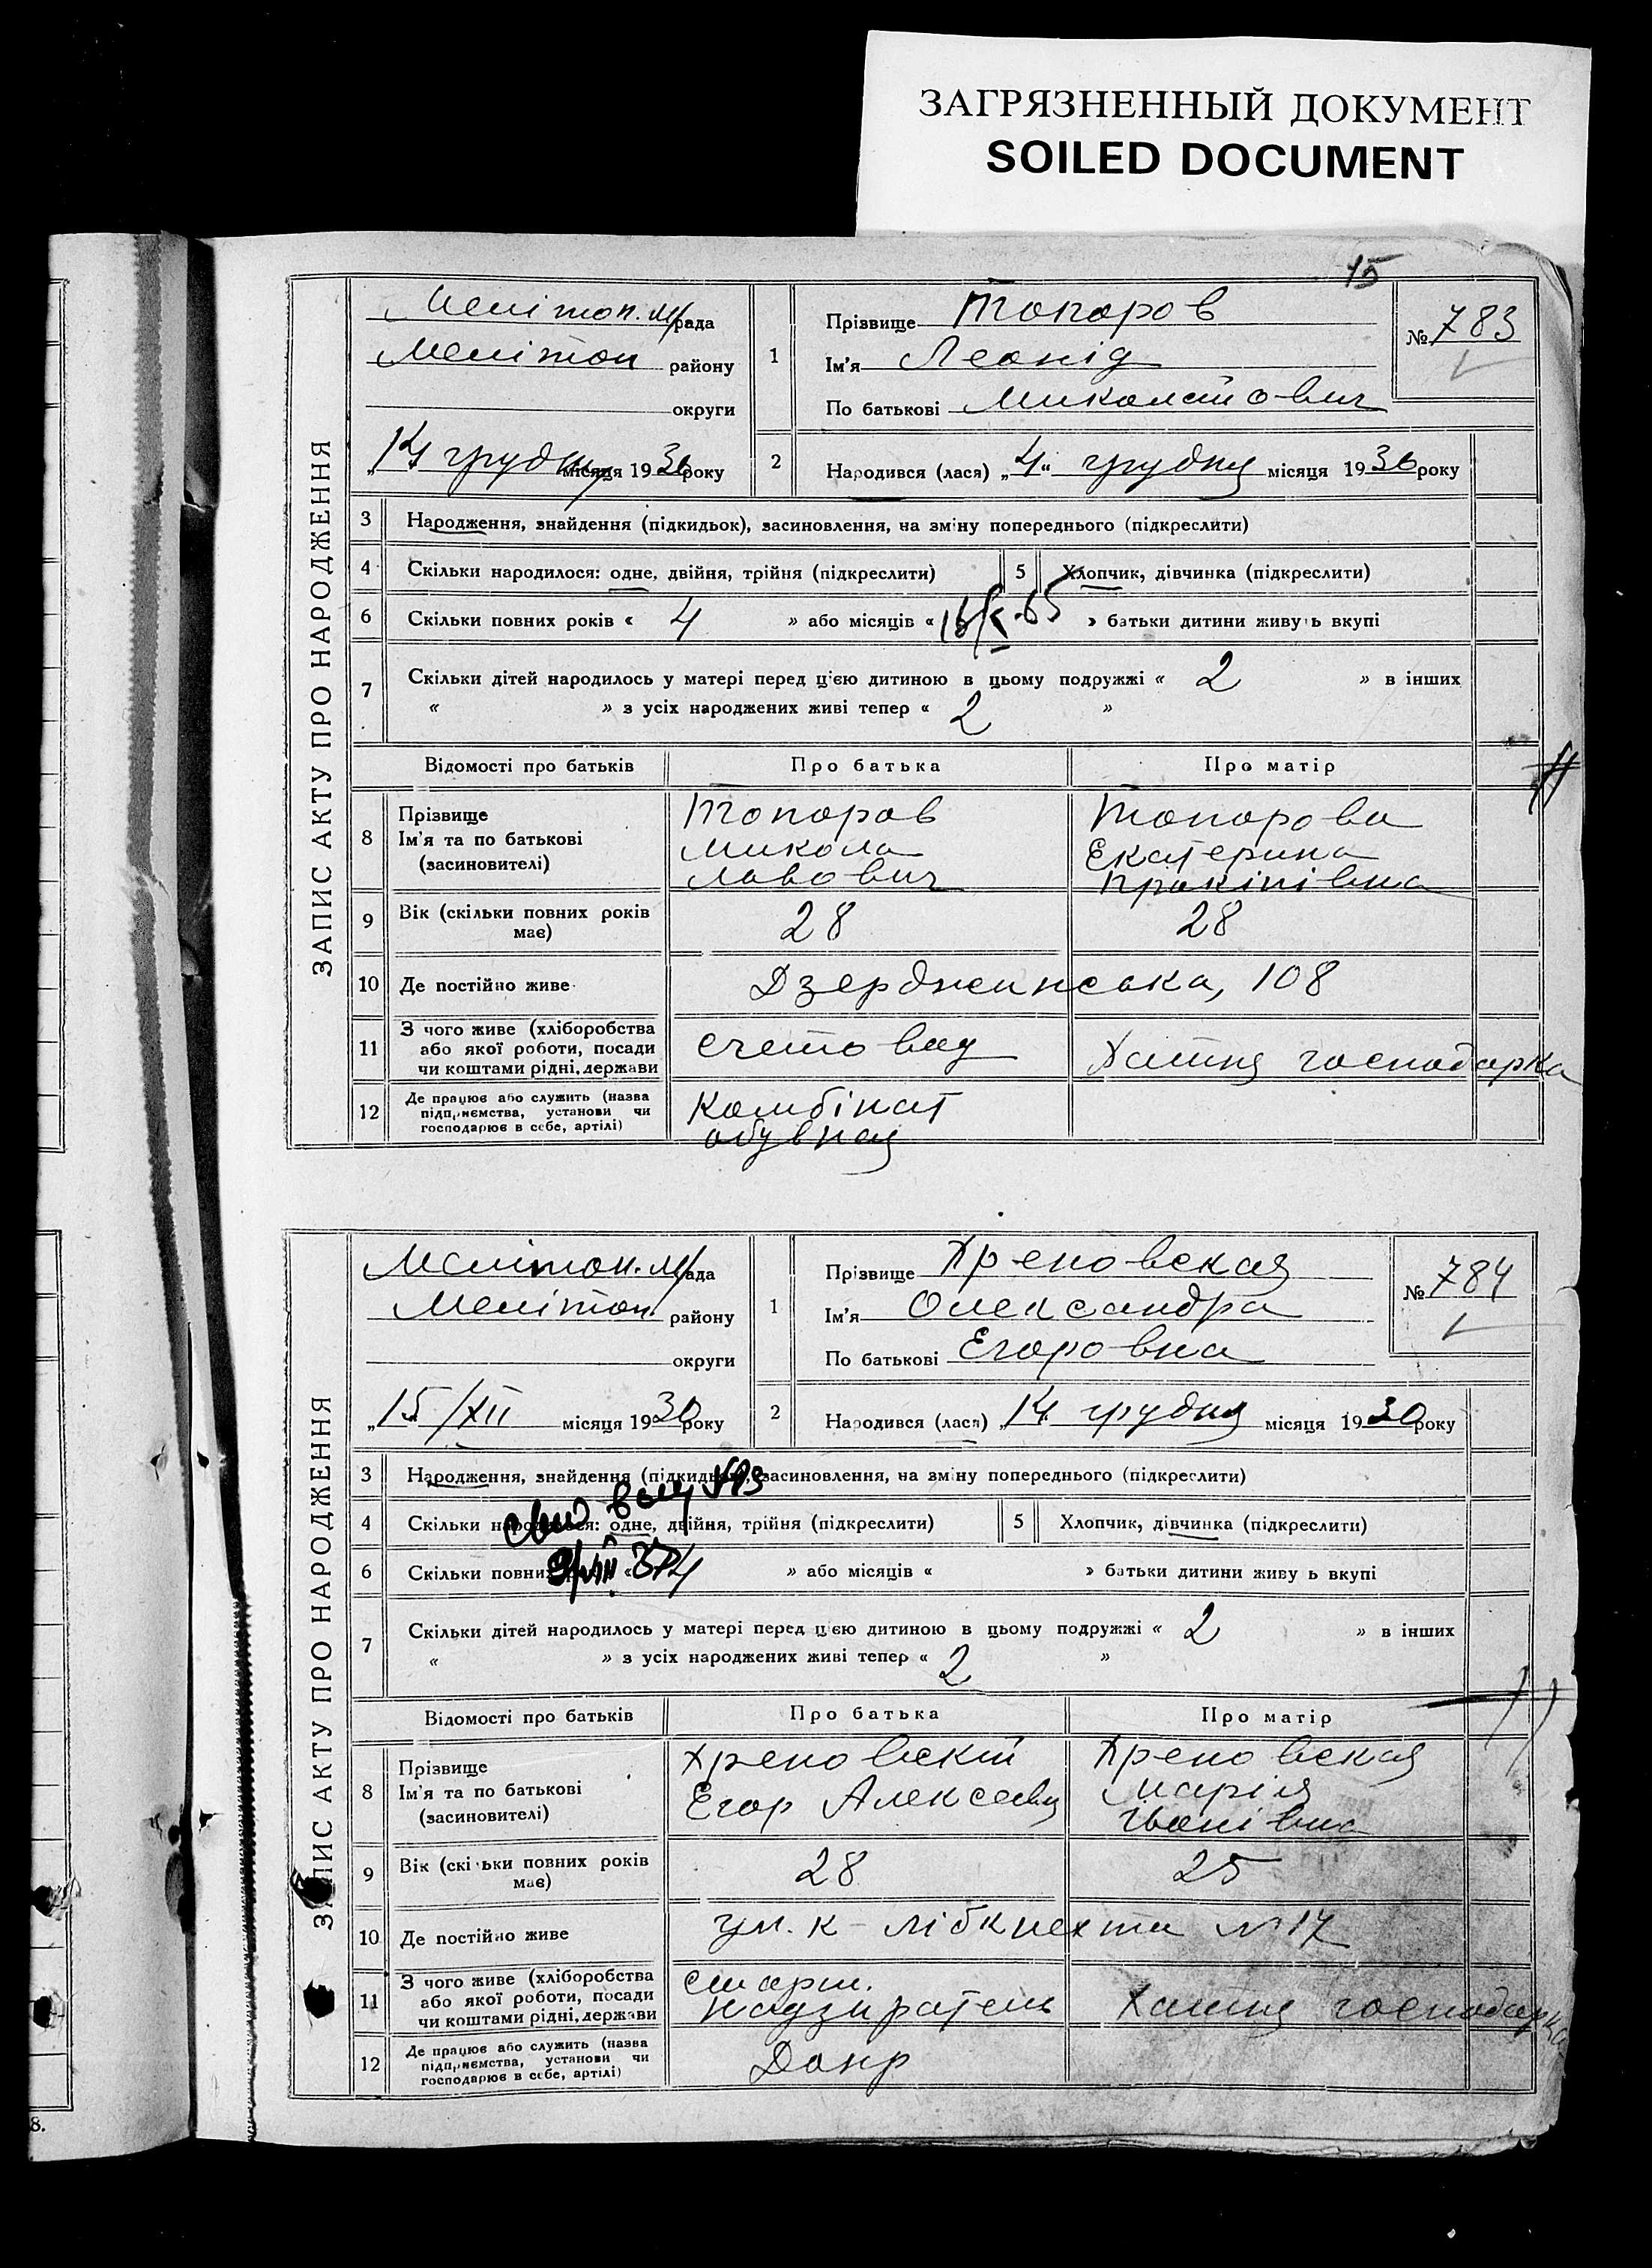 ЗАГРЯЗНЕННЫЙ ДОКУМЕНТ
SOILED DOCUMENT
15
ЗАПИС АКТУ ПРО НАРОДЖЕННЯ
Мелітоп. м/рада
Мелітоп району
округи
„14 грудня місяця 1930 року
1
Прізвище Топоров
Ім'я Леонід
По батькові Миколайович
№ 783
2
Народився (лася) „4“ грудня місяця 1930 року
3 Народження, знайдення (підкидьок), засиновлення, на зміну попереднього (підкреслити)
4 Скільки народилося: одне, двійня, трійня (підкреслити) 5 Хлопчик, дівчинка (підкреслити)
6 Скільки повних років « 4 » або місяців « » батьки дитини живуть вкупі
7 Скільки дітей народилось у матері перед цією дитиною в цьому подружжі « 2 » в інших
« » з усіх народжених живі тепер « 2 »
Відомості про батьків Про батька Про матір
8 Прізвище Ім'я та по батькові (засиновителі)
Топоров Микола Львович
Топорова Екатерина Прокіпівна
9 Вік (скільки повних років має) 28 28
10 Де постійно живе Дзерджинська, 108
11 З чого живе (хліборобства або якої роботи, посади чи коштами рідні, держави
счетовод
Хатня господарка
12 Де працює або служить (назва підприємства, установи чи господарює в себе, артілі)
Комбінат обувной
ЗАПИС АКТУ ПРО НАРОДЖЕННЯ
Мелітоп. м/рада
Мелітоп. району
округи
„15/XII місяця 1930 року
1
Прізвище Хреновская
Ім'я Олександра
По батькові Егоровна
№ 784
2
Народився (лася) „14“ грудня місяця 1930 року
3 Народження, знайдення (підкидьок), засиновлення, на зміну попереднього (підкреслити)
4 Скільки народилося: одне, двійня, трійня (підкреслити) 5 Хлопчик, дівчинка (підкреслити)
6 Скільки повних років « » або місяців « » батьки дитини живуть вкупі
7 Скільки дітей народилось у матері перед цією дитиною в цьому подружжі « 2 » в інших
« » з усіх народжених живі тепер « 2 »
Відомості про батьків Про батька Про матір
8 Прізвище Ім'я та по батькові (засиновителі)
Хреновский Егор Алексеевич
Хреновская Марія Іванівна
9 Вік (скільки повних років має) 28 25
10 Де постійно живе ул. К-Лібкнехта № 17
11 З чого живе (хліборобства або якої роботи, посади чи коштами рідні, держави
старш. надзиратель
Хатня господарка
12 Де працює або служить (назва підприємства, установи чи господарює в себе, артілі)
Допр
8.